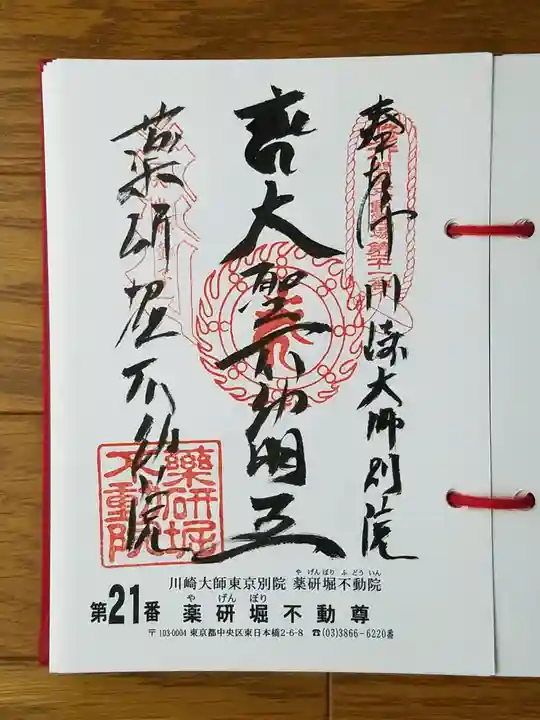 奉拝 川崎大師別院
大聖不動明王
薬研堀不動院
薬研堀
不動院
川崎大師東京別院 薬研堀不動院
や げんぼり ふ どう いん
第21番 薬研堀不動尊
や げん ぼり
〒103-0004 東京都中央区東日本橋2-6-8 ☎(03)3866-6220番